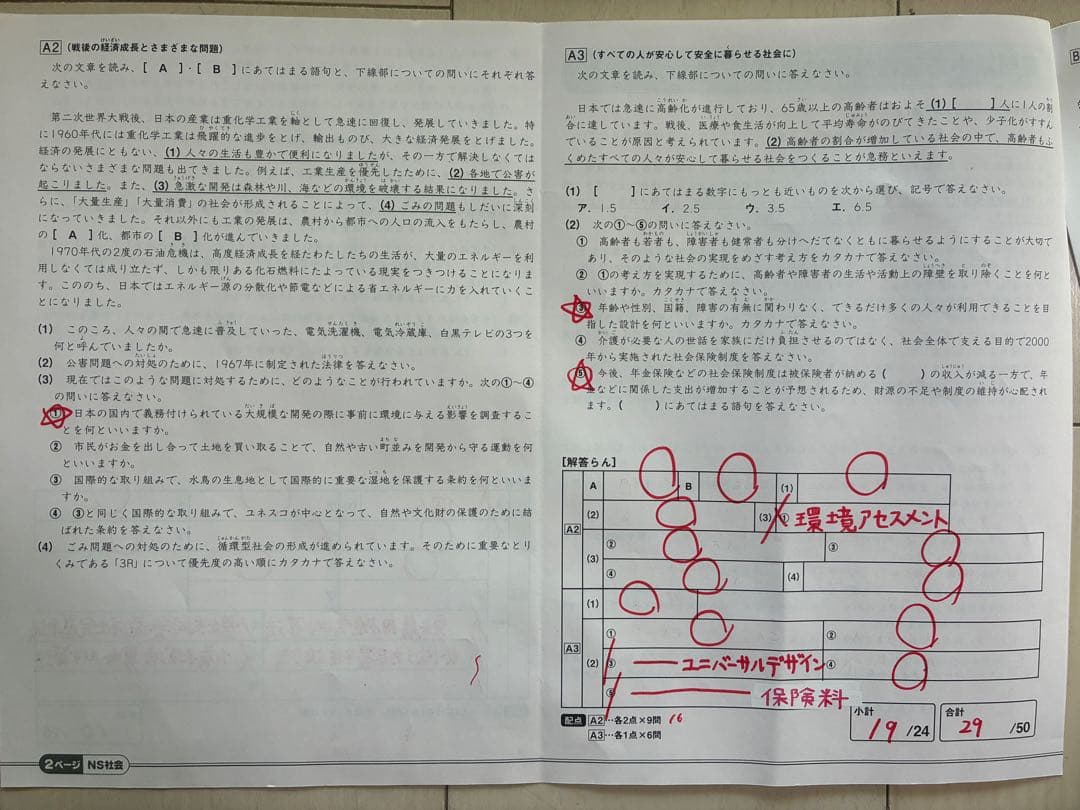 A2 (戦後の経済成長とさまざまな問題)
次の文章を読み、[ A ]・[ B ]にあてはまる語句と、下線部についての問いにそれぞれ答
えなさい。
第二次世界大戦後、日本の産業は重化学工業を軸として急速に回復し、発展していきました。特
に1960年代には重化学工業は飛躍的な進歩をとげ、輸出ものび、大きな経済発展をとげました。
経済の発展にともない、(1) 人々の生活も豊かで便利になりましたが、その一方で解決しなくては
ならないさまざまな問題も出てきました。例えば、工業生産を優先したために、(2) 各地で公害が
起こりました。また、(3) 急激な開発は森林や川、海などの環境を破壊する結果になりました。さ
らに、「大量生産」「大量消費」の社会が形成されることによって、(4) ごみの問題もしだいに深刻
になっていきました。それ以外にも工業の発展は、農村から都市への人口の流入をもたらし、農村
の[ A ]化、都市の[ B ]化が進んでいきました。
1970年代の2度の石油危機は、高度経済成長を経たわたしたちの生活が、大量のエネルギーを利
用しなくては成り立たず、しかも限りある化石燃料にたよっている現実をつきつけることになりま
す。こののち、日本ではエネルギー源の分散化や節電などによる省エネルギーに力を入れていくこ
とになりました。
(1) このころ、人々の間で急速に普及していった、電気洗濯機、電気冷蔵庫、白黒テレビの3つを
何と呼んでいましたか。
(2) 公害問題への対処のために、1967年に制定された法律を答えなさい。
(3) 現在ではこのような問題に対処するために、どのようなことが行われていますか。次の①~④
の問いに答えなさい。
① 日本の国内で義務付けられている大規模な開発の際に事前に環境に与える影響を調査するこ
とを何といいますか。
② 市民がお金を出し合って土地を買い取ることで、自然や古い町並みを開発から守る運動を何
といいますか。
③ 国際的な取り組みで、水鳥の生息地として国際的に重要な湿地を保護する条約を何といいま
すか。
④ ③と同じく国際的な取り組みで、ユネスコが中心となって、自然や文化財の保護のために結
ばれた条約を答えなさい。
(4) ごみ問題への対処のために、循環型社会の形成が進められています。そのために重要なとり
くみである「3R」について優先度の高い順にカタカナで答えなさい。
2ページ NS社会
A3 (すべての人が安心して安全に暮らせる社会に)
次の文章を読み、下線部についての問いに答えなさい。
日本では急速に高齢化が進行しており、65歳以上の高齢者はおよそ(1)[ ]人に1人の割
合に達しています。戦後、医療や食生活が向上して平均寿命がのびてきたことや、少子化がすすん
でいることが原因と考えられています。(2) 高齢者の割合が増加している社会の中で、高齢者もふ
くめたすべての人々が安心して暮らせる社会をつくることが急務といえます。
(1) [ ]にあてはまる数字にもっとも近いものを次から選び、記号で答えなさい。
ア. 1.5 イ. 2.5 ウ. 3.5 エ. 6.5
(2) 次の①~⑤の問いに答えなさい。
① 高齢者も若者も、障害者も健常者も分けへだてなくともに暮らせるようにすることが大切で
あり、そのような社会の実現をめざす考え方をカタカナで答えなさい。
② ①の考え方を実現するために、高齢者や障害者の生活や活動上の障壁を取り除くことを何と
いいますか。カタカナで答えなさい。
③ 年齢や性別、国籍、障害の有無に関わりなく、できるだけ多くの人々が利用できることを目
指した設計を何といいますか。カタカナで答えなさい。
④ 介護が必要な人の世話を家族にだけ負担させるのではなく、社会全体で支える目的で2000
年から実施された社会保険制度を答えなさい。
⑤ 今後、年金保険などの社会保険制度は被保険者が納める( )の収入が減る一方で、年
金などに関係した支出が増加することが予想されるため、財源の不足や制度の維持が心配され
ます。( )にあてはまる語句を答えなさい。
[解答らん]
A2 A B (1)
(2) (3) ① 環境アセスメント
(3) ② ③
④ (4)
A3 (1)
(2) ① ②
③ ユニバーサルデザイン ④
⑤ 保険料
配点 A2…各2点×9問 16
A3…各1点×6問
小計 19/24
合計 29/50